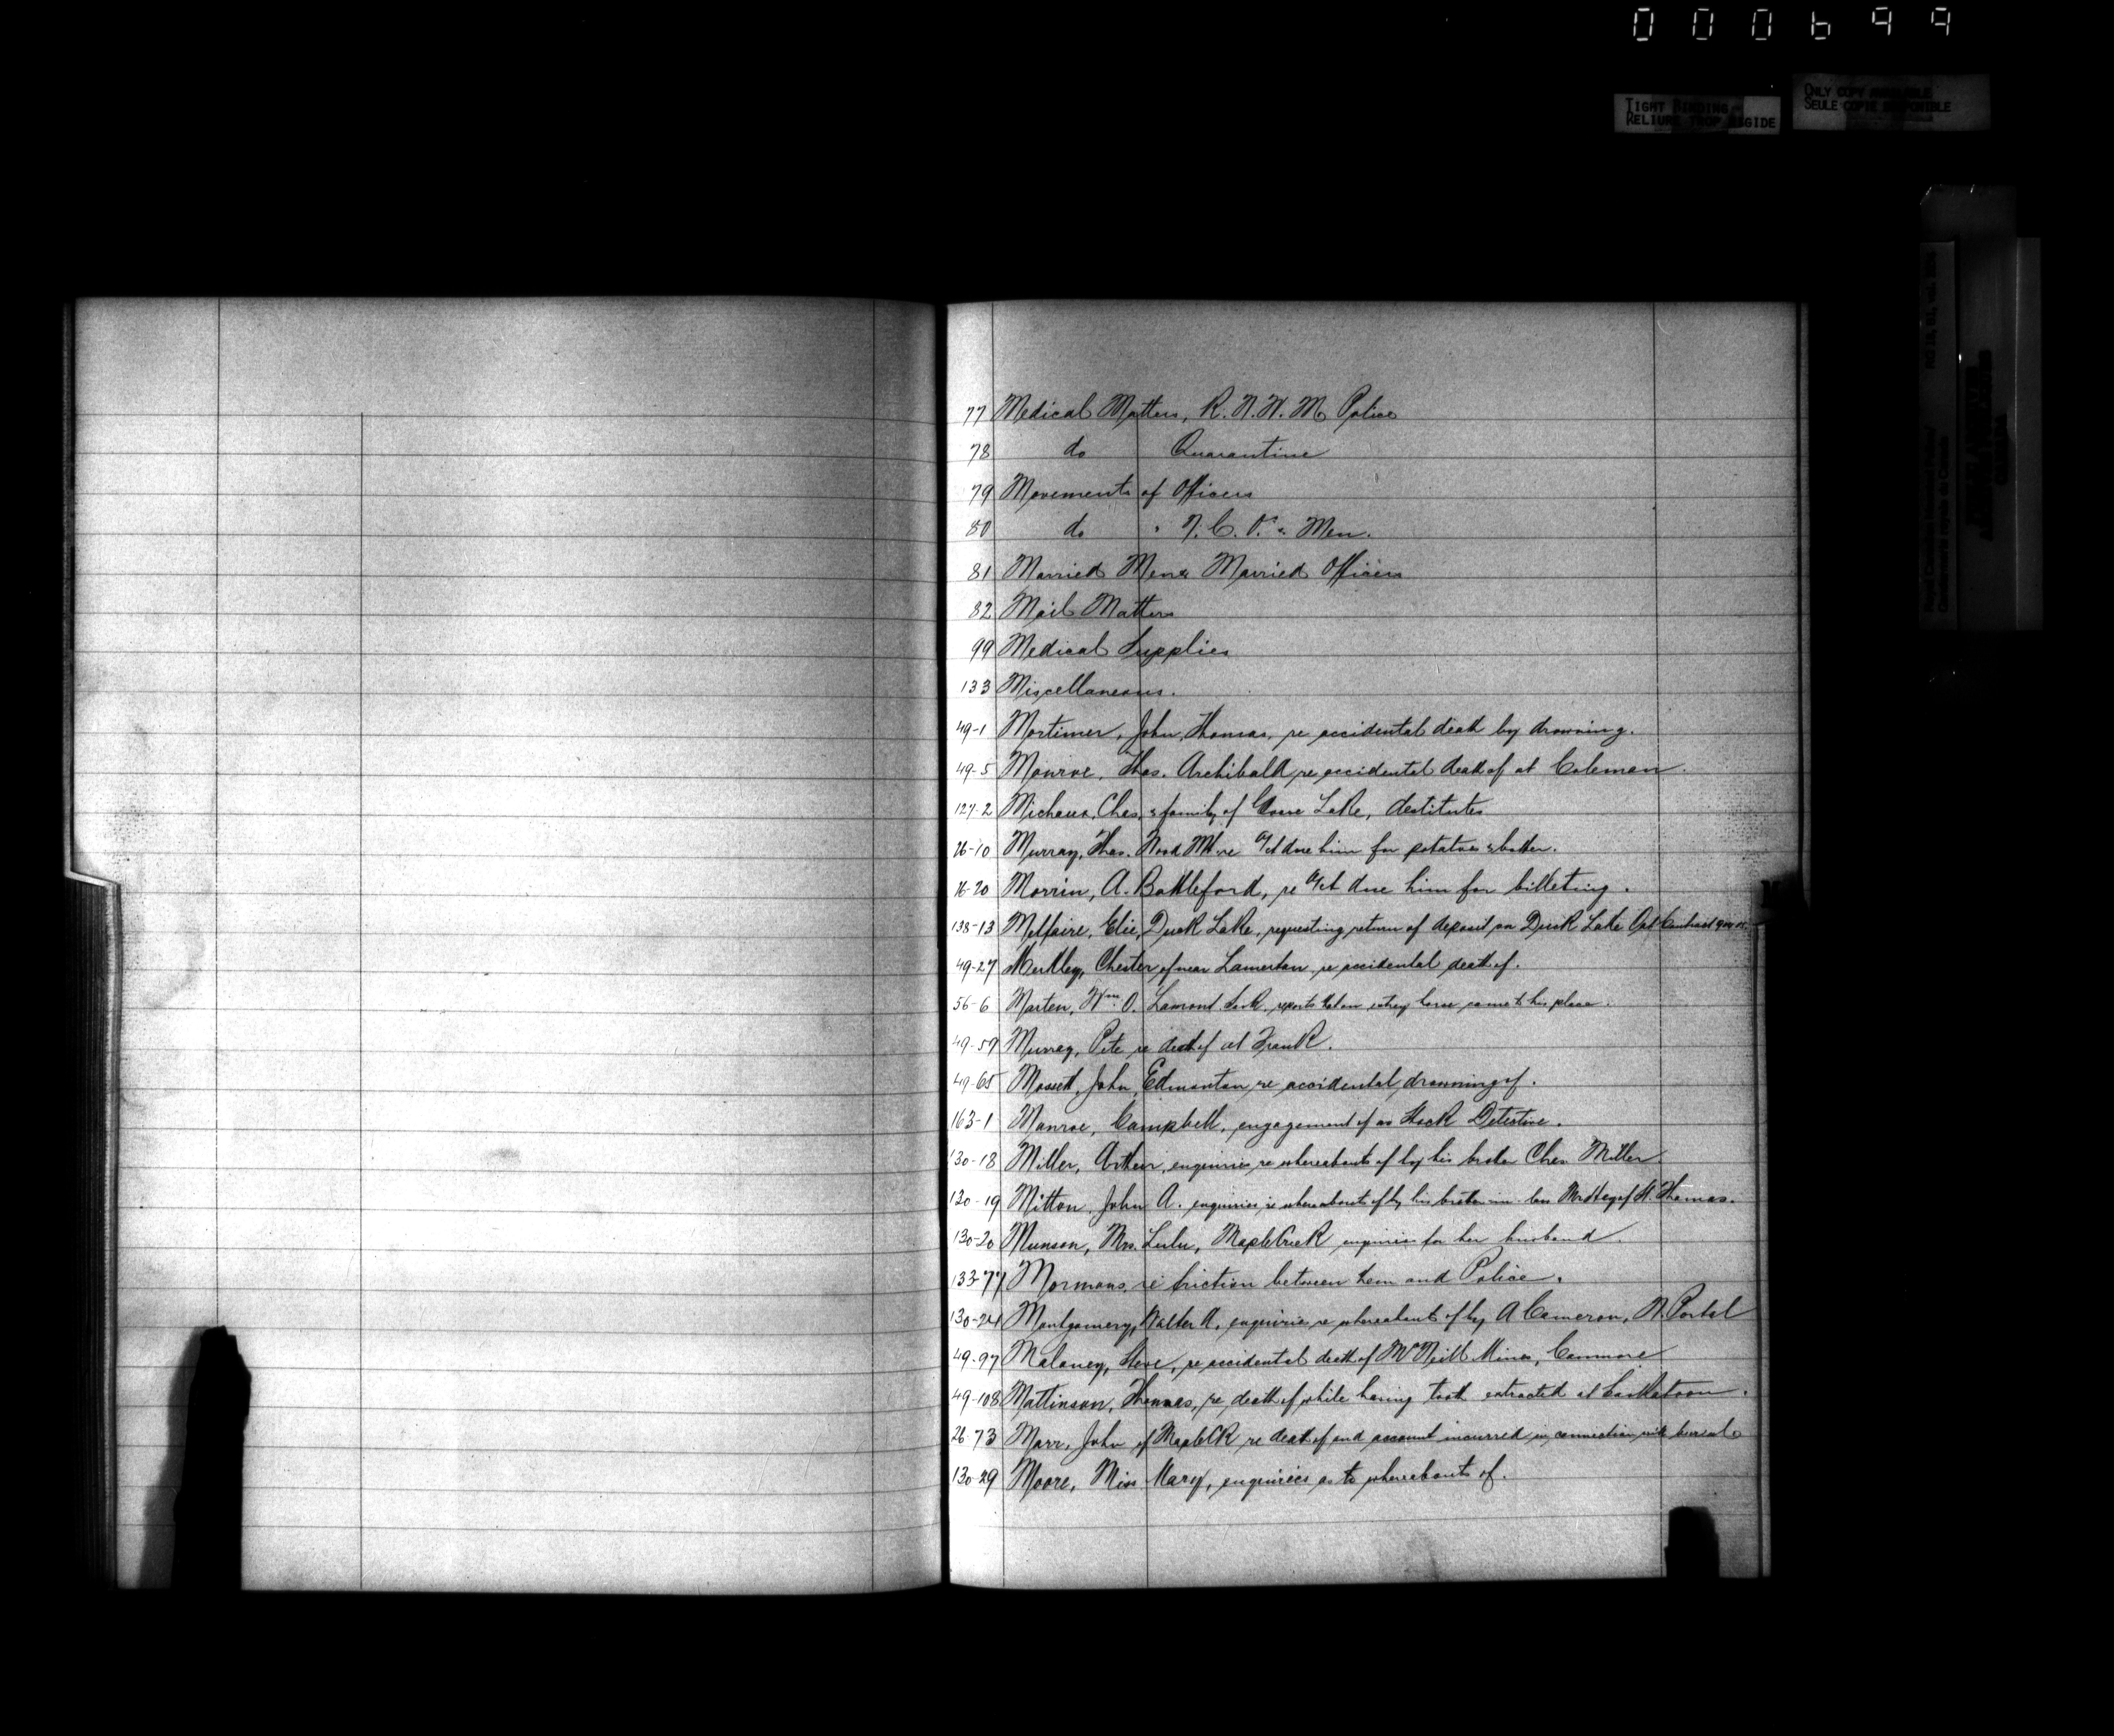 000699
TIGHT BINDING
RELIURE TROP RIGIDE
ONLY COPY AVAILABLE
SEULE COPIE DISPONIBLE
77 Medical Matters, R. N. W. M. Police
78 do Quarantine
79 Movements of Officers
80 do " N. C. O's & Men.
81 Married Men & Married Officers
82 Mail Matters
99 Medical Supplies
133 Miscellaneous.
49-1 Mortimer, John Thomas, re accidental death by drowning.
49-5 Monroe, Thos. Archibald re accidental death of at Coleman.
127-2 Micheux, Chas, & family of Goose Lake, destitute
26-10 Murray, Thos. Wood Mt. re a/ct due him for potatoes & butter.
16-20 Morrin, A. Battleford, re a/ct due him for billeting.
138-13 Elie, Duck Lake, requesting return of deposit on Duck Lake Oat Contract
49-27 Merkley, Chester of near Lamerton re accidental death of.
56-6 Morten, Wm. O. Lamont, reports that an estray horse came to his place.
49-59 Murray, Pete re death of at Frank.
49-65 John, Edmonton re accidental drowning of.
163-1 Monroe, Campbell, engagement of as Stock Detective.
130-18 Miller, Arthur, enquiries re whereabouts of by his brother Chas. Miller
130-19 Mitton, John A. enquiries re whereabouts of by his brother-in-law of St. Thomas.
130-20 Munson, Mrs. Lulu, Maple Creek enquiries for her husband.
133-77 Mormons, re friction between them and Police.
130-24 Montgomery, Walter A, enquiries re whereabouts of by A Cameron, N. Portal
49-97 Malaney, Steve, re accidental death of McNeill Mines, Canmore
49-108 Mattinson, Thomas, re death of while having tooth extracted at Saskatoon.
26-73 Marr, John of Maple CK re death of and account incurred in connection with burial
130-29 Moore, Miss Mary, enquiries as to whereabouts of.